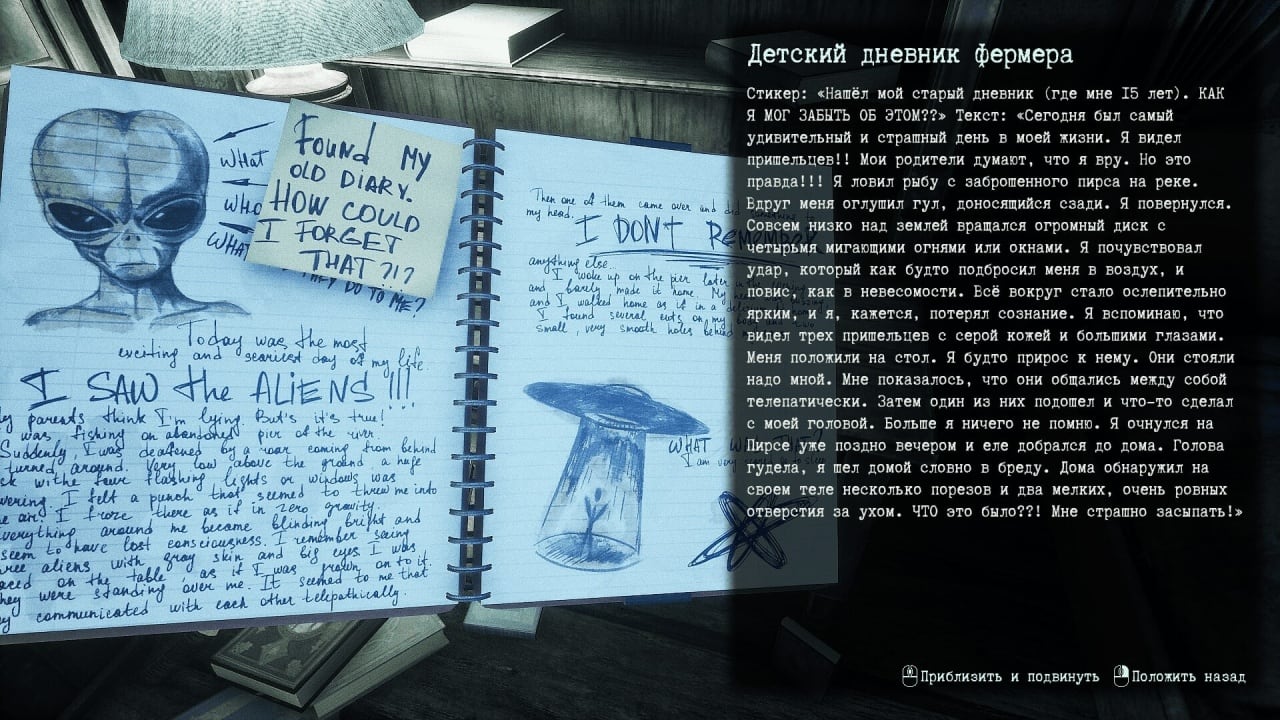 WHAT
WHO
WHAT
FOUND MY
OLD DIARY.
HOW COULD
I FORGET
THAT ?!?
THEY DO TO ME?
Today was the most
exciting and scariest day of my life.
I SAW the ALIENS !!!
parents think I'm lying. But's it's true!
was fishing on abandoned pier of the river.
Suddenly, I was deafened by a roar coming from behind
turned around. Very low above the ground a huge
withe four flashing lights or windows was
I felt a punch that seemed to threw me into
air. I froze there as if in zero gravity.
everything around me became blinding bright and
seem to have lost consciousness. I remember seing
aliens with gray skin and big eyes. I was
on the table, as if I was grown on to it.
They were standing over me. It seemed to me that
communicated with each other telepathically.
Then one of them came over and did
my head.
I DON'T REMEMBER
anything else.
I woke up on the pier later
and barely made it home. My
and I walked home as if in a
I found several cuts on my body and two
small, very smooth holes behind
WHAT
I am very
Детский дневник фермера
Стикер: «Нашёл мой старый дневник (где мне 15 лет). КАК
Я МОГ ЗАБЫТЬ ОБ ЭТОМ??» Текст: «Сегодня был самый
удивительный и страшный день в моей жизни. Я видел
пришельцев!! Мои родители думают, что я вру. Но это
правда!!! Я ловил рыбу с заброшенного пирса на реке.
Вдруг меня оглушил гул, доносящийся сзади. Я повернулся.
Совсем низко над землей вращался огромный диск с
четырьмя мигающими огнями или окнами. Я почувствовал
удар, который как будто подбросил меня в воздух, и
повис, как в невесомости. Всё вокруг стало ослепительно
ярким, и я, кажется, потерял сознание. Я вспоминаю, что
видел трех пришельцев с серой кожей и большими глазами.
Меня положили на стол. Я будто прирос к нему. Они стояли
надо мной. Мне показалось, что они общались между собой
телепатически. Затем один из них подошел и что-то сделал
с моей головой. Больше я ничего не помню. Я очнулся на
Пирсе уже поздно вечером и еле добрался до дома. Голова
гудела, я шел домой словно в бреду. Дома обнаружил на
своем теле несколько порезов и два мелких, очень ровных
отверстия за ухом. ЧТО это было??! Мне страшно засыпать!»
Приблизить и подвинуть Положить назад